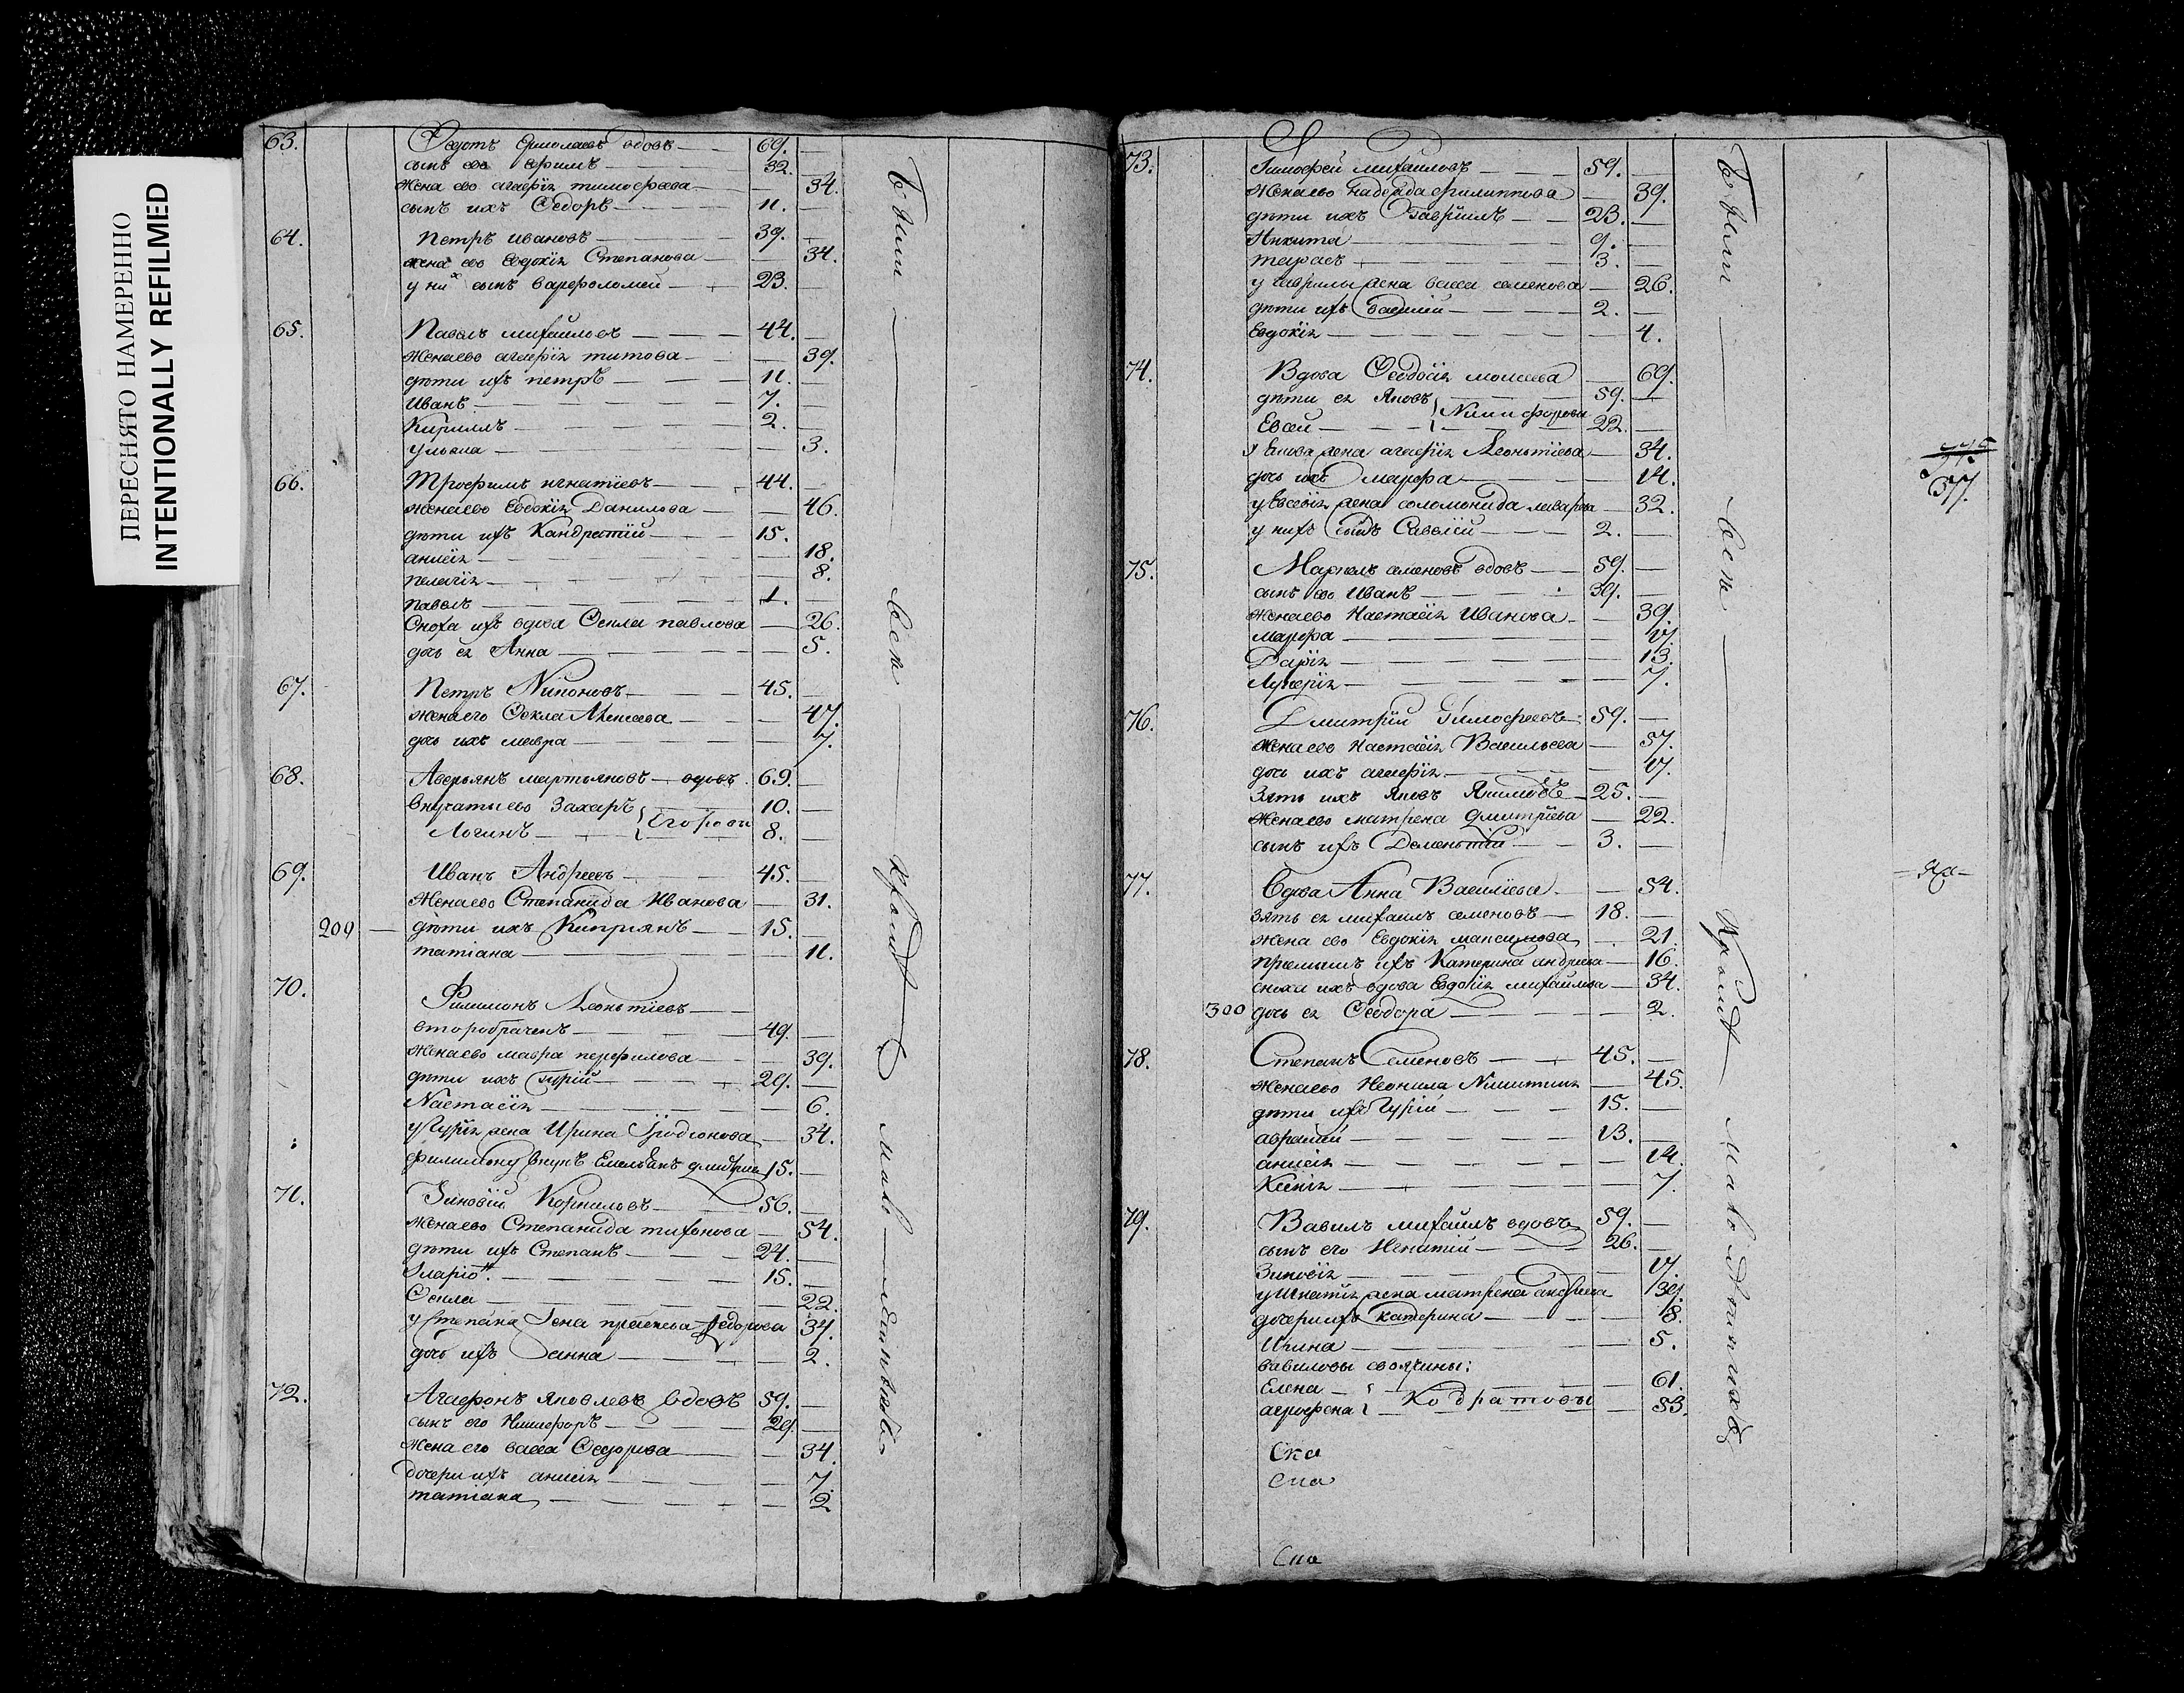 ПЕРЕСНЯТО НАМЕРЕННО
INTENTIONALLY REFILMED
63. Федотъ Ермолаевъ вдовъ 69.
сынъ ево Ефимъ 32.
жена ево агафїя тимофеева 34.
сынъ ихъ Федоръ 11.
64. Петръ Ивановъ 39.
жена ево Евдокїя Степанова 34.
у них сынъ варфоломеи 23.
65. Павелъ михаиловъ 44.
Жена ево агафїя титова 39.
дѣти ихъ петръ 11.
Иванъ 7.
Кирилъ 2.
ульяна 3.
66. Трофимъ игнатїевъ 44.
жена ево Евдокїя Данилова 46.
дѣти ихъ Кандратїи 15.
анисїя 18.
пелагїя 8.
павелъ 1.
Сноха ихъ вдова Фекла павлова 26.
дочь ея Анна 5.
67. Петръ Никоновъ 45.
жена его Фекла Алексеева 47.
дочь ихъ мавра 7.
68. Аверьянъ мартьяновъ вдовъ 69.
внучаты ево Захаръ 10.
Егоровы
Логинъ 8.
69. Иванъ Андреевъ 45.
Жена ево Степанида Иванова 31.
209 дѣти ихъ Киприянъ 15.
татїана 11.
70. Филимонъ Леонтїевъ
второбраченъ 49.
Жена ево мавра перфилова 39.
дѣти ихъ Гурїй 29.
Настасїя 6.
у Гурїя жена Ирина Родионова 34.
филимону внукъ Емельянъ 15.
71. Зиновїй Корниловъ 56.
Жена ево Степанида тихонова 54.
дѣти ихъ Степанъ 24.
Їларїо 15.
Фекла 22.
у Степана жена прасковья Федорова 34.
дочь ихъ анна 2.
72. Агафонъ яковлевъ вдовъ 59.
сынъ его Никифоръ 29.
Жена его васса Федорова 34.
дочери ихъ анисїя 7.
татїана 2
Были
всѣ
кромѣ
мало
73. Тимофеи михаиловъ 59.
Жена ево надежда филиппова 39.
дѣти ихъ Гаврїилъ 23.
Никита 9.
тарасъ 3.
у гаврилы жена васса семенова 26.
дѣти ихъ василїи 2.
Евдокїя 4.
74. Вдова Феодосїя моисеева 69.
дѣти ея Яковъ 59.
Никифоровы
Евсеи 22.
у Якова жена агафїя Леонтїева 34.
дочь ихъ марфа 14.
у Евсевїя жена соломонида 32.
у нихъ сынъ Савелїй 2.
75. Маркелъ семеновъ вдовъ 59.
сынъ ево Иванъ 39.
Жена ево Настасїя Иванова 39.
Марфа 17.
Дарїя 13.
Лукерїя 7.
76. Дмитрїи Тимофеевъ 59.
Жена ево Настасїя Васильева 57.
дочь ихъ агафїя 17.
Зять ихъ Яковъ Якимовъ 25.
Жена ево матрена дмитрїева 22.
сынъ ихъ Деменьтїй 3.
77. Вдова Анна Василїева 54.
зять ея михаилъ семеновъ 18.
жена ево Евдокїя максимова 21.
премышъ ихъ Катерина андреева 16.
сноха ихъ вдова Евдокїя михаилова 34.
300 дочь ея Феодора 2.
78. Степанъ Семеновъ 45.
Жена ево Неонила Никитина 45.
дѣти ихъ Гурїи 15.
аврамїи 13.
анисїя 14.
Ксенїя 7.
79. Вавилъ михаилъ вдовъ 59.
сынъ его Игнатїи 26.
Зиновїя 17.
у Игнатїя жена матрена андреева 39.
дочери ихъ катерина 8.
Ирина 5.
вавиловы своячины:
Елена 61.
Кодратовы
агрофена 53.
Ска
Ска
Ска
Были
всѣ
кромѣ
малолѣтнихъ
577.